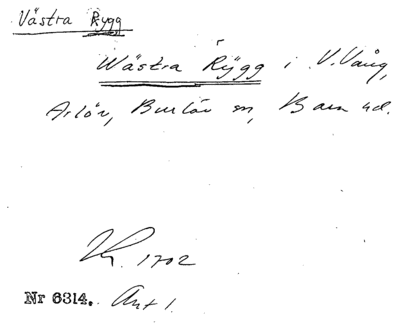 Västra Rygg
Wästra Rÿgg i V. Vång,
Arlöv, Burlöv sn, Bara hd.
1702
Nr 6314. Ant 1.